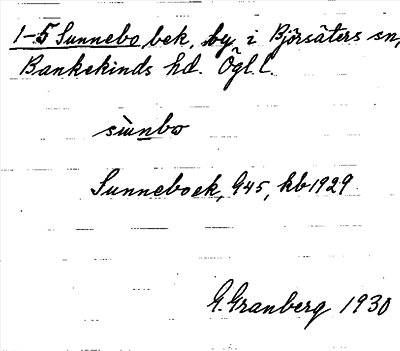 1-5 Sunnebo bek, by i Björsäters sn,
Bankekinds hd. Ögl. l.
sùnbo
Sunneboek, G45, kb 1929
G. Granberg 1930